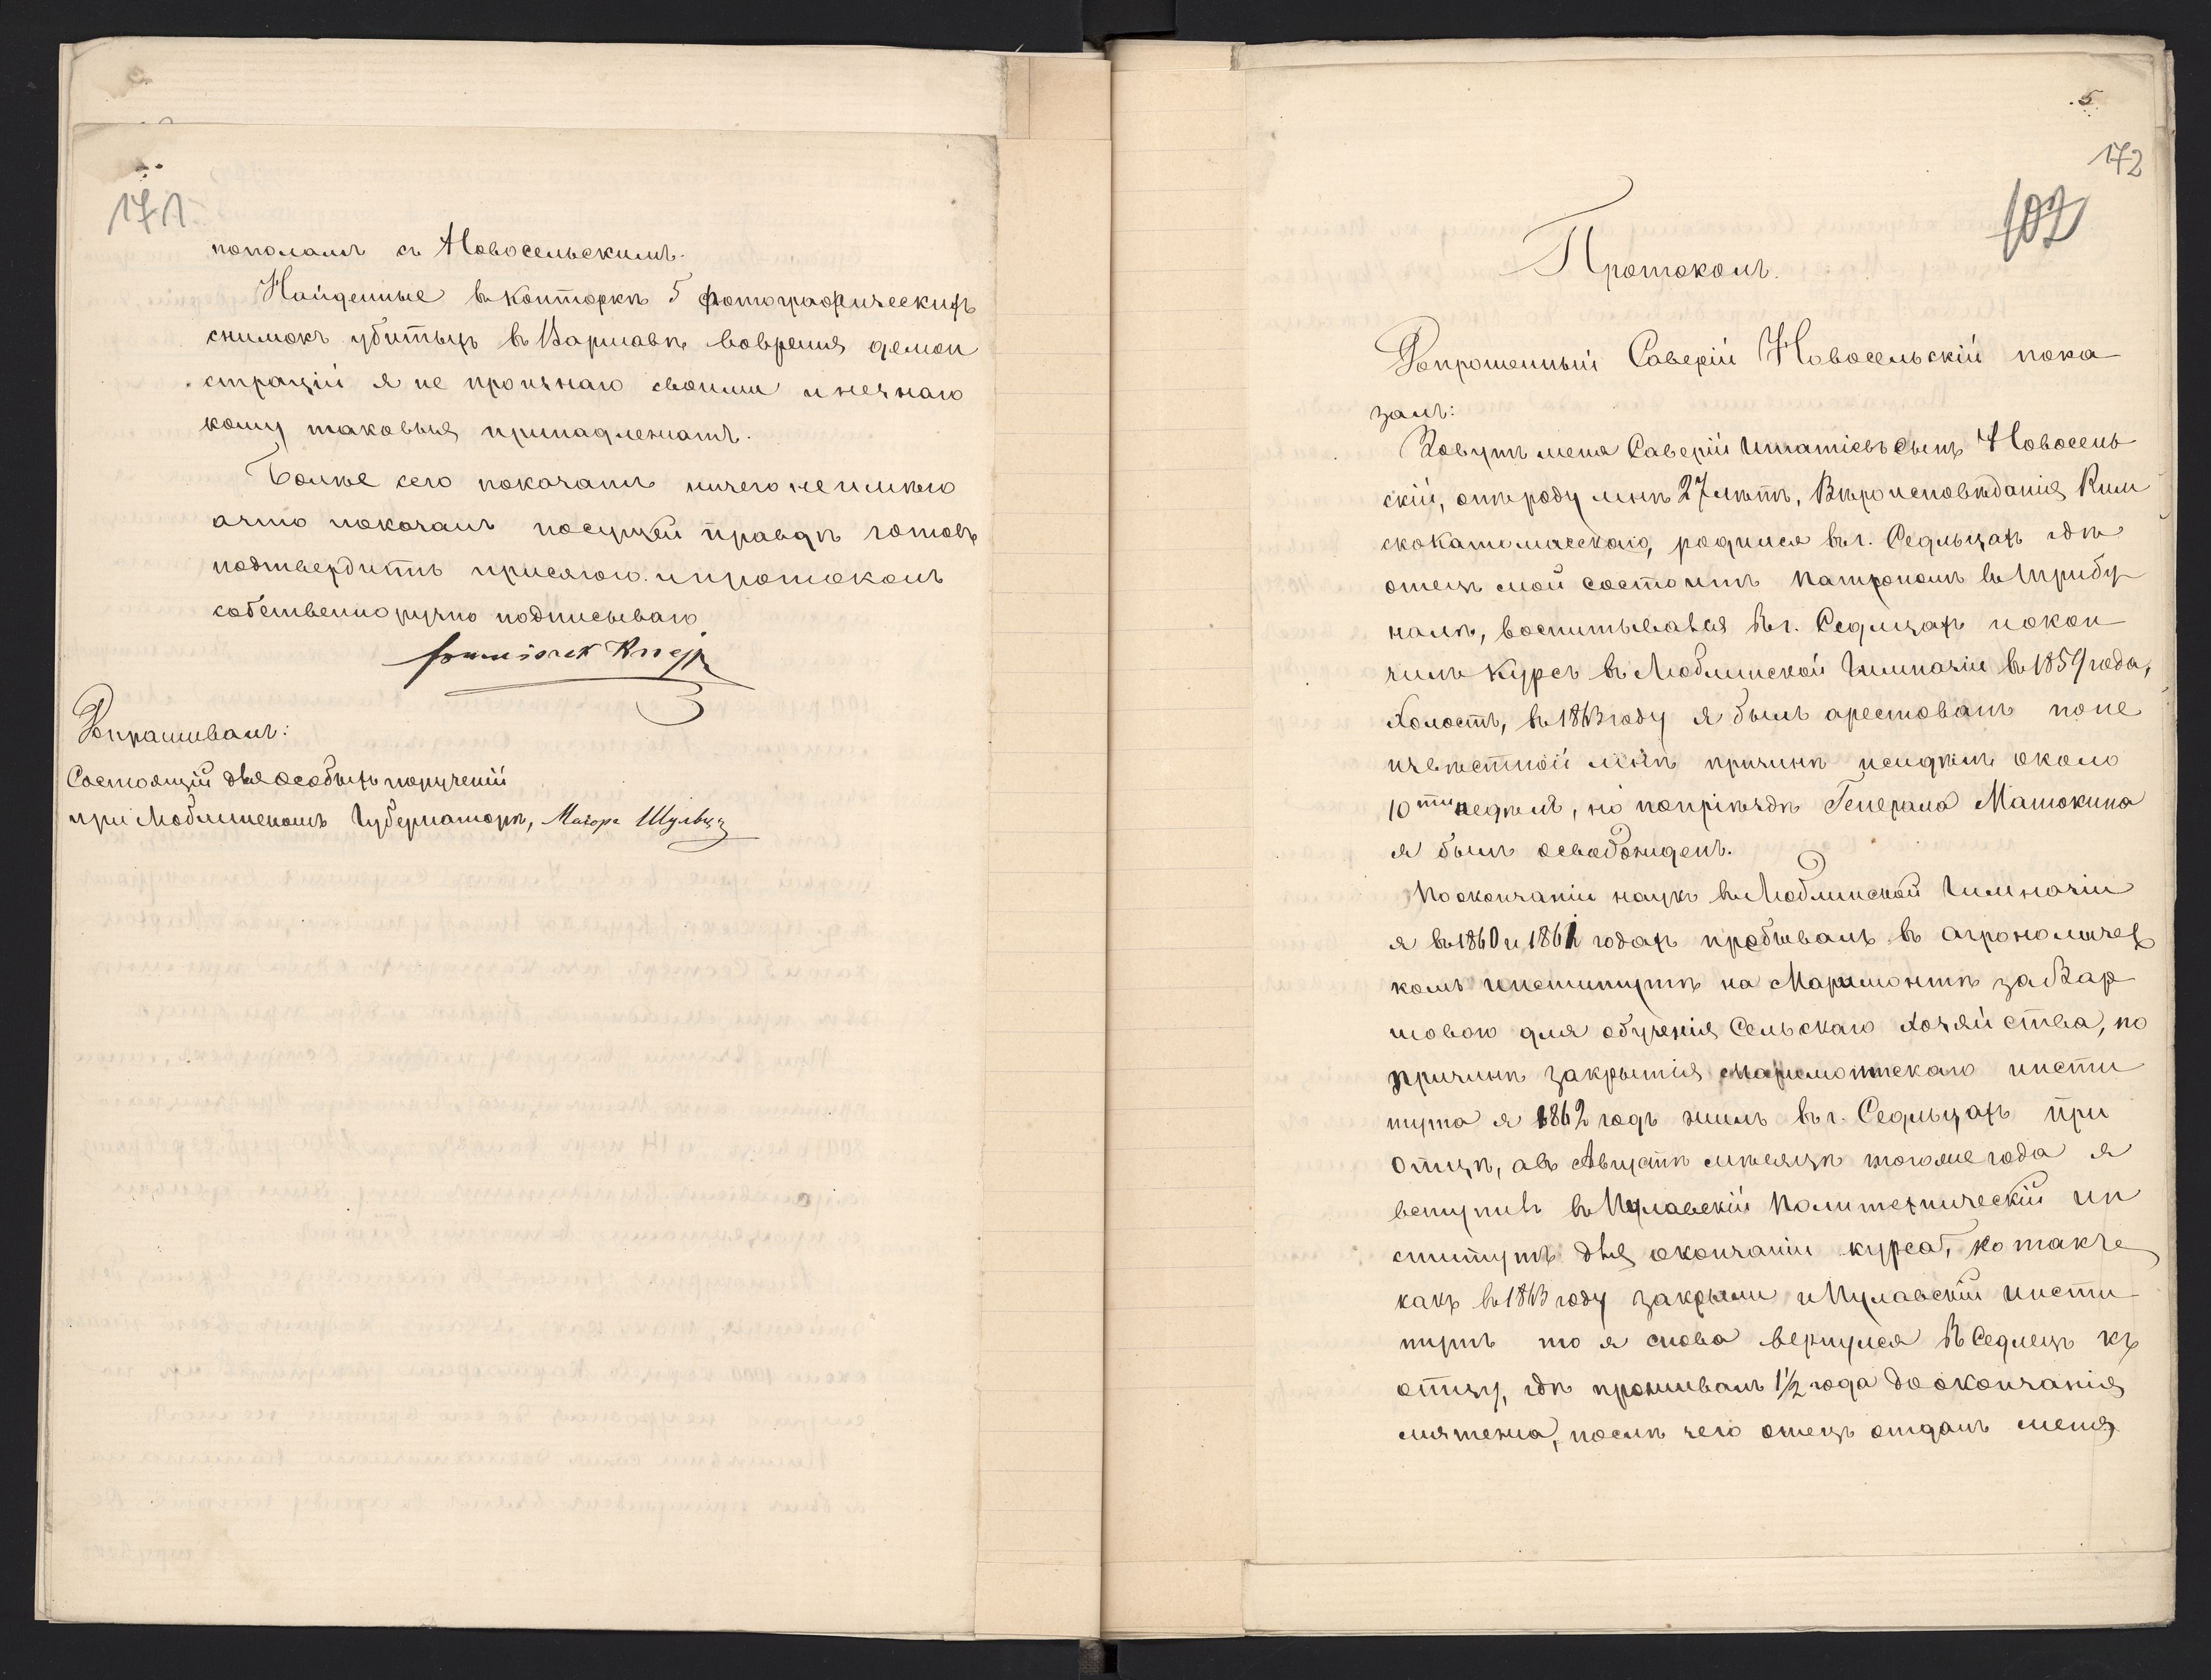 171
пополамъ съ Новосельскимъ.
Найденные въ конторкѣ 5 фотографическихъ
снимокъ убитыхъ въ Варшавѣ вовремя демон
страцій я не признаю своими и незнаю
кому таковыя принадлежатъ.
Болѣе сего показать ничего не имѣю
а что показалъ посущей правдѣ готовъ
подтвердить присягою. и протоколъ
собственноручно подписываю
Franciszek
Допрашивалъ:
Состоящій для особыхъ порученій
при Люблинскомъ Губернаторѣ, Маіоръ Шульцъ
5
172
102
Протоколъ.
Допрошенный Саверій Новосельскій пока
залъ:
Зовутъ меня Саверій Игнатіевъ сынъ Новосель
скій, отъ роду мнѣ 27 лѣтъ, Вѣроисповѣданія Рим
скокатолическаго, родился въ г. Седльцахъ гдѣ
отецъ мой состоитъ патрономъ въ трибу
налѣ, воспитывался въ г. Седлцахъ и окон
чилъ курсъ въ Люблинской Гимназіи въ 1859 года,
Холостъ, въ 1863 году я былъ арестованъ по не
извѣстной мнѣ причинѣ и сидѣлъ около
10ти недѣль, но по пріѣздѣ Генерала Манюкина
я былъ освобожденъ.
По окончаніи наукъ въ Люблинской Гимназіи
я въ 1860 и 1861 годахъ пребывалъ въ агрономичес
комъ институтѣ на Маримонтѣ за Вар
шавою для обученія Сельскаго хозяйства, по
причинѣ закрытія маримонтскаго инсти
тута я 1862 годъ жилъ въ г. Седльцахъ при
Отцѣ, а въ Августѣ мѣсяцѣ того же года я
вступилъ въ Пулавскій Политехническій ин
ститутъ для окончанія курса, но такъ
какъ въ 1863 году закрыли и Пулавскій инсти
тутъ то я снова вернулся въ Седлецъ къ
отцу, гдѣ проживалъ 1½ года до окончанія
мятежа, послѣ чего отецъ отдалъ меня